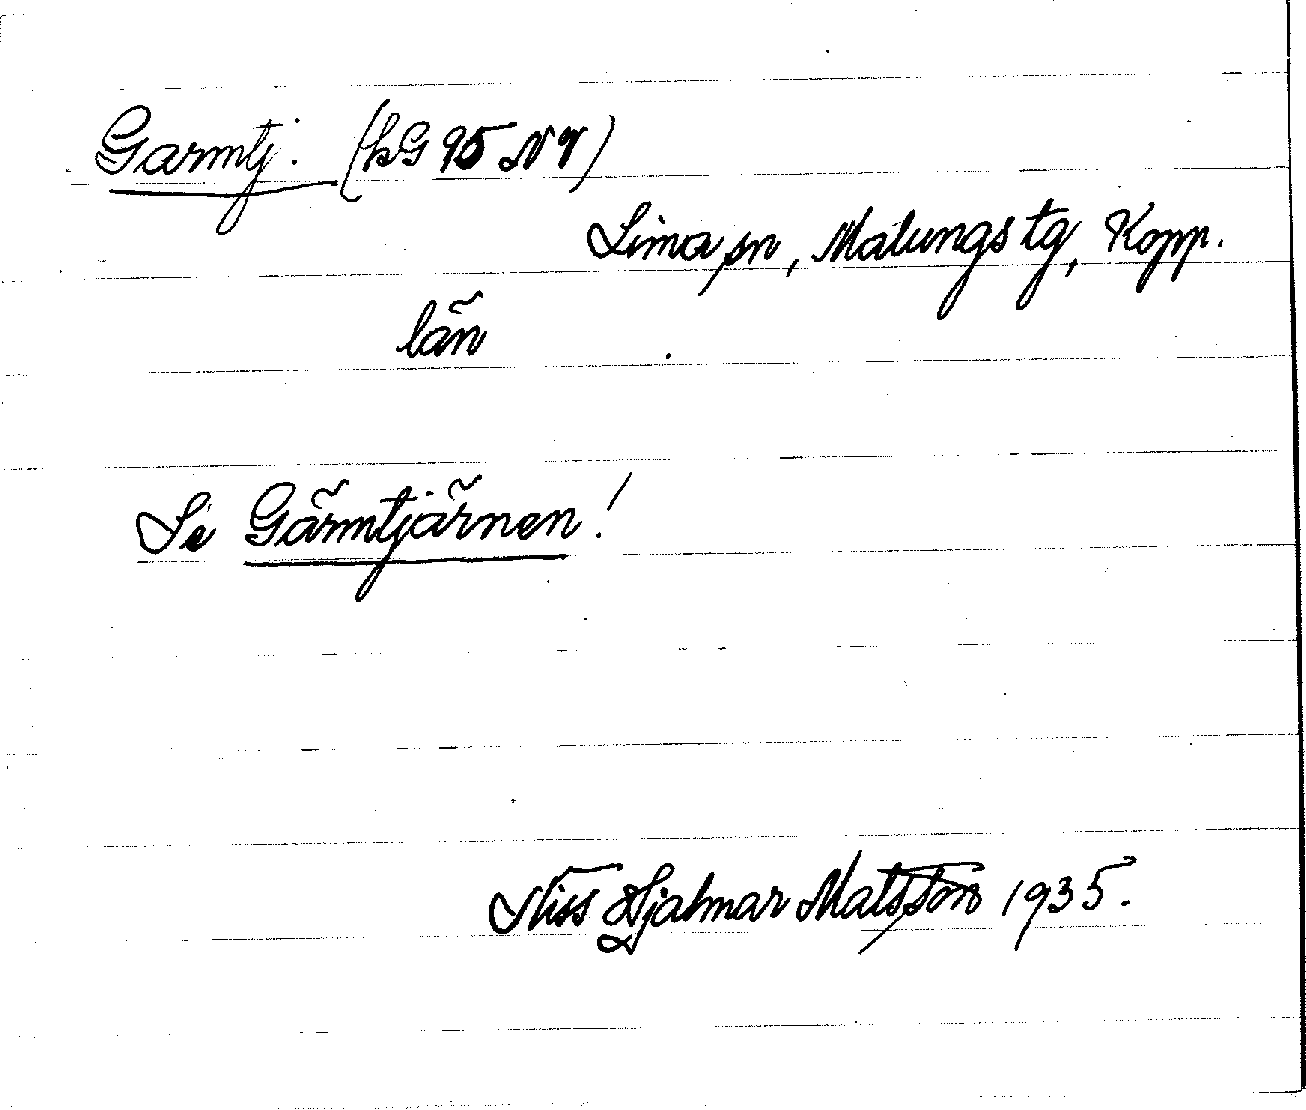 Garmtj. (LG 95 NV)
Lima sn, Malungs tg, Kopp.
län
Se Gärmtjärnen!
Niss Hjalmar Matsson 1935.